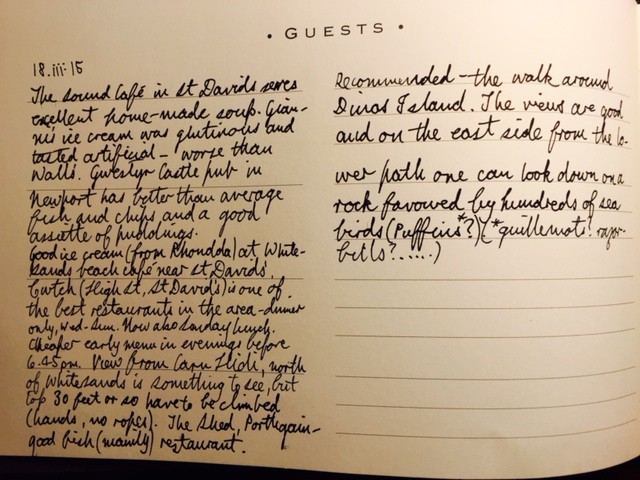 • GUESTS •
18.iii.15
The Sound Café in St Davids serves
excellent home-made soup. Gian-
nis ice cream was glutinous and
tasted artificial – worse than
Walls. Gwestyr Castle pub in
Newport has better than average
fish and chips and a good
assiette of puddings.
Good ice cream (from Rhondda) at White-
sands beach café near St Davids.
Cwtch (High St, St Davids) is one of
the best restaurants in the area – dinner
only, Wed-Sun. Now also Sunday lunch.
Cheaper early menu in evenings before
6.45pm. View from Carn Llidi, north
of Whitesands is something to see, but
top 30 feet or so have to be climbed
(hands, no ropes). The Shed, Porthgain –
good fish (mainly) restaurant.
Recommended – the walk around
Dinas Island. The views are good
and on the east side from the lo-
wer path one can look down on a
rock favoured by hundreds of sea
birds (Puffins*?) (*guillemots? razor-
bills?.....)